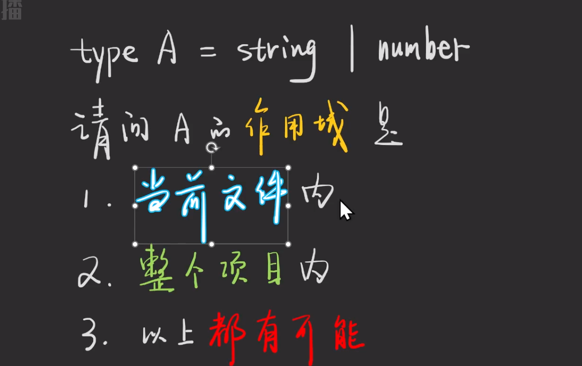 播
type A = string | number
请问 A 的作用域是
1. 当前文件内
2. 整个项目内
3. 以上都有可能